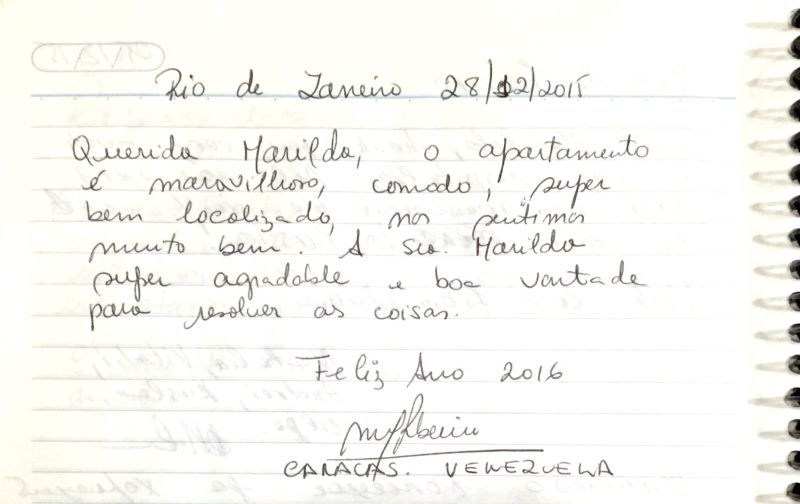 Rio de Janeiro 28/12/2015
Querida Marilda, o apartamento
é maravilhoso, comodo, super
bem localizado, nos sentimos
muito bem. A sra. Marilda
super agradable e boa vontade
para resolver as coisas.
Feliz Ano 2016
CARACAS. VENEZUELA